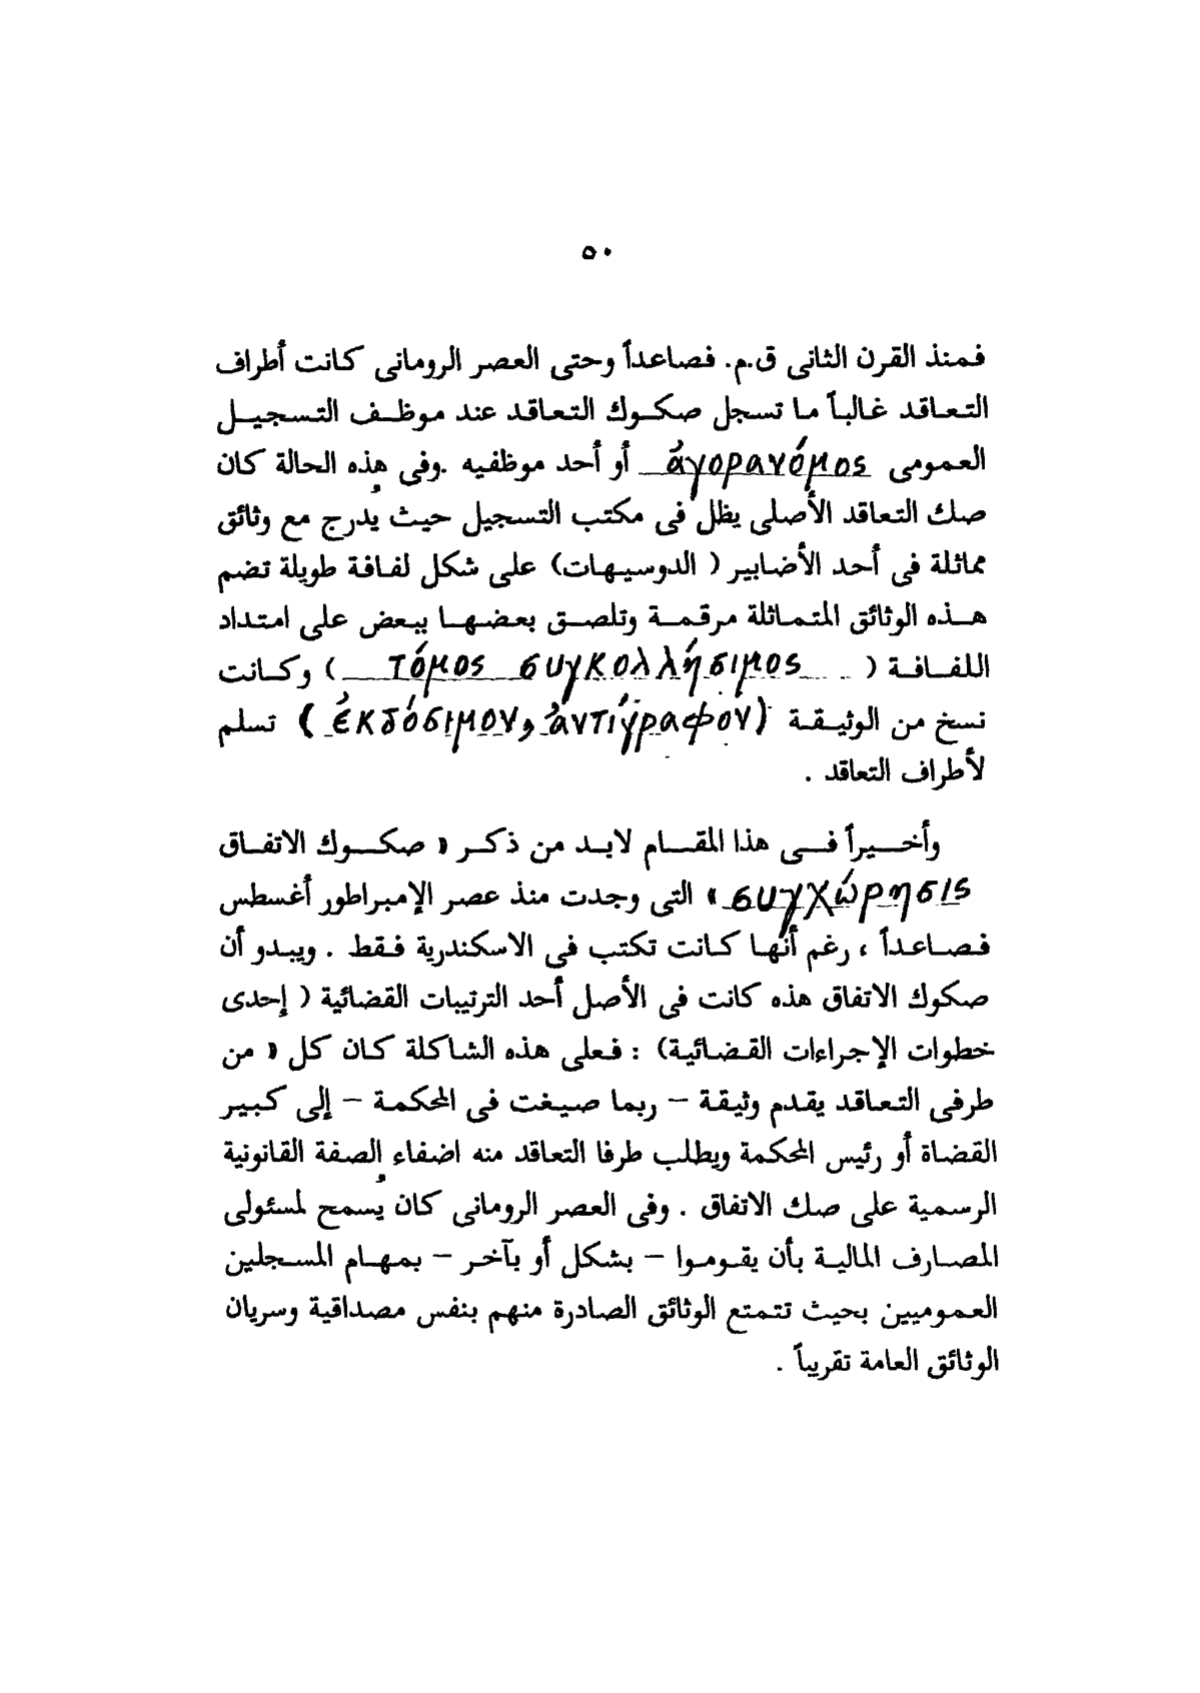 ٥٠
فمنذ القرن الثانى ق.م. فصاعداً وحتى العصر الرومانى كانت أطراف
التعاقد غالباً ما تسجل صكوك التعاقد عند موظف التسجيل
العمومى ἀγορανόμος أو أحد موظفيه .وفى هذه الحالة كان
صك التعاقد الأصلى يظل فى مكتب التسجيل حيث يُدرج مع وثائق
مماثلة فى أحد الأضابير ( الدوسيهات) على شكل لفافة طويلة تضم
هذه الوثائق المتماثلة مرقمة وتلصق بعضها ببعض على امتداد
اللفافة ( τόμος συγκολλήσιμος ) وكانت
نسخ من الوثيقة (ἐκδόσιμον, ἀντίγραφόν ) تسلم
لأطراف التعاقد .
وأخيراً فى هذا المقام لابد من ذكر « صكوك الاتفاق
συγχώρησις » التى وجدت منذ عصر الإمبراطور أغسطس
فصاعداً ، رغم أنها كانت تكتب فى الاسكندرية فقط . ويبدو أن
صكوك الاتفاق هذه كانت فى الأصل أحد الترتيبات القضائية ( إحدى
خطوات الإجراءات القضائية) : فعلى هذه الشاكلة كان كل « من
طرفى التعاقد يقدم وثيقة – ربما صيغت فى المحكمة – إلى كبير
القضاة أو رئيس المحكمة ويطلب طرفا التعاقد منه اضفاء الصفة القانونية
الرسمية على صك الاتفاق . وفى العصر الرومانى كان يُسمح لمسئولى
المصارف المالية بأن يقوموا – بشكل أو بآخر – بمهام المسجلين
العموميين بحيث تتمتع الوثائق الصادرة منهم بنفس مصداقية وسريان
الوثائق العامة تقريباً .